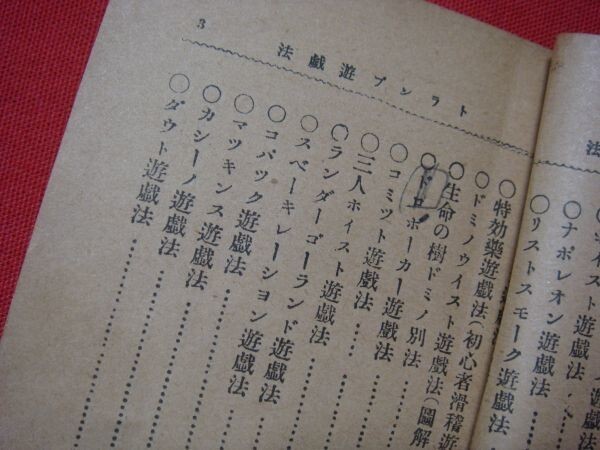 3
法戯遊プンラト
法
ナポレオン遊戯法
〇リストスモーク遊戯法
〇特効藥遊戯法(初心者滑稽遊
〇ドミノウイスト遊戯法(圖解
〇生命の樹ドミノ別法
〇ドロポーカー遊戯法
〇コミツト遊戯法
〇三人ホイスト遊戯法
〇ランダーゴーランド遊戯法
〇スベーキレーション遊戯法
〇コバック遊戯法
〇マツキンス遊戯法
〇カシーノ遊戯法
〇ダウト遊戯法